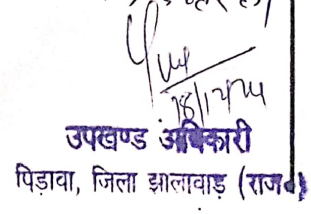 18/12/24
उपखण्ड अधिकारी
पिड़ावा, जिला झालावाड़ (राज०)